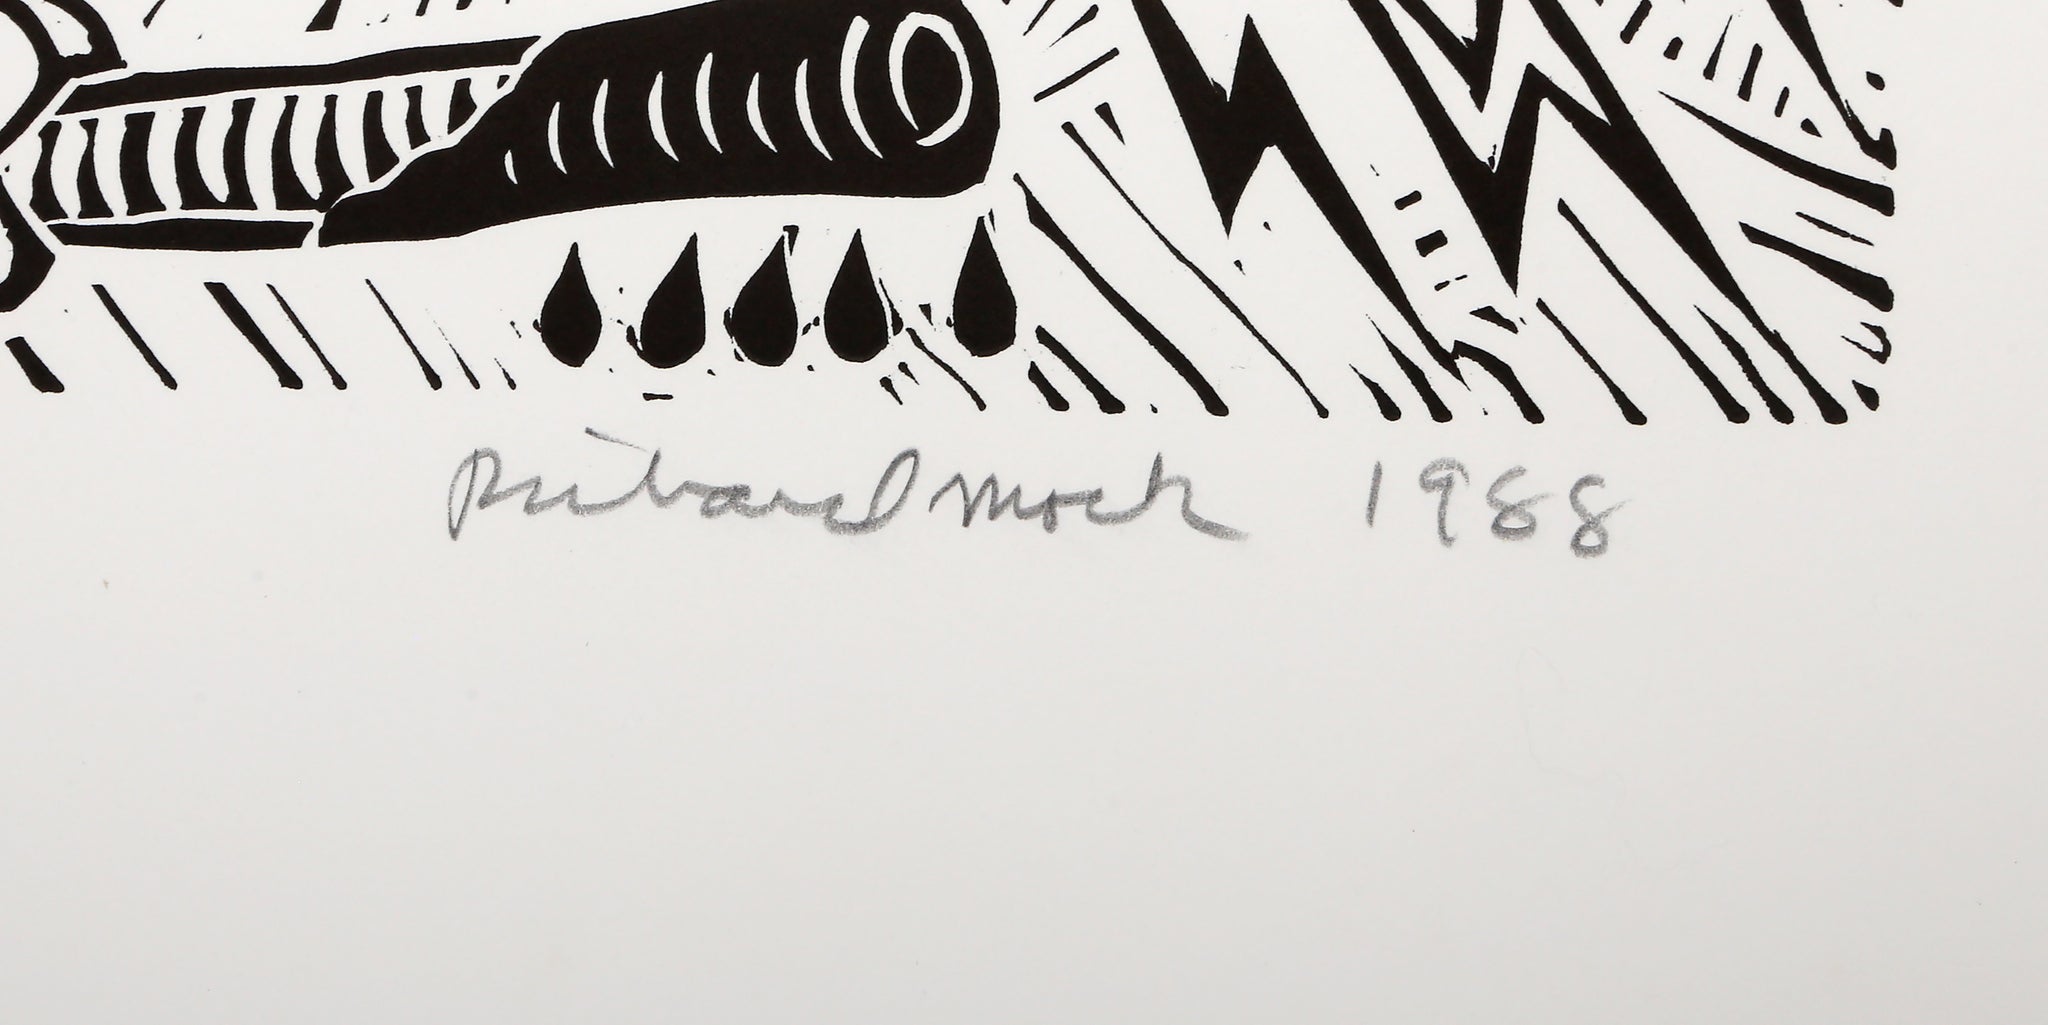 Richard Mock 1988